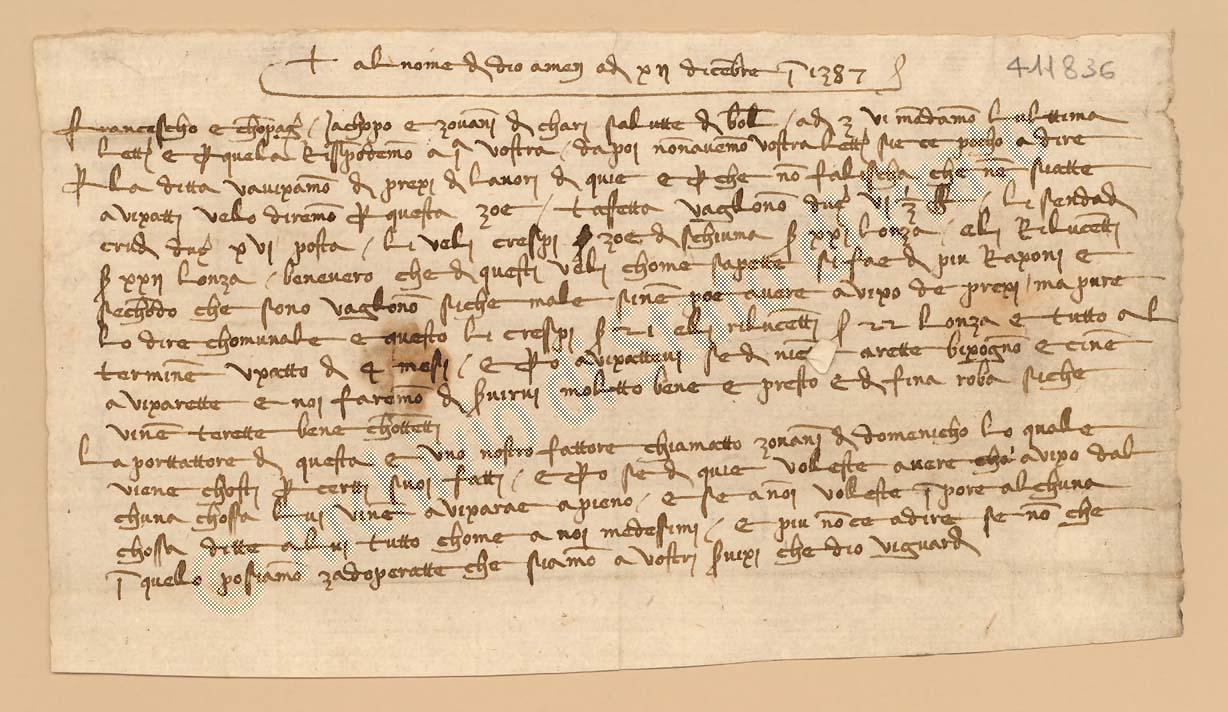 411836
+ al nome de dio amen adi xii dicenbre i 1387
Francescho e chonpag / Jachopo e zovani de chari salutte de bol / adi 3 vi mandamo l'ulttima
letter e per quela rissspondemo a i a vostra / da poi non avemo vostra letter siche ce pocho a dire
Per la ditta vavixamo de prexi de lavori de quie e per che non falischa che non siatte
avixatti velo diremo per questa zoe / taffetta vaglono duc vi ½ / li sendadi
crudi duc xvi posta / li veli crespi zoe de schiuma s xxi l'onza / e li rilucenti
s xxii l'onza / benevero che de questi veli chome sapette si fae de piu raxoni e
sechondo che sono vaglono siche male sine poe avere avixo de prexi / ma pure
lo dire chomunale e questo li crespi s 21 e li rilucenti s 22 l'onza e tutto al
termine uxatto de 4 mesi / e pero avixattevi se de niente arette bixogno e cine
avixarette e noi faremo de servirvi moltto bene e presto e de fina roba siche
vine terette bene chontenti
La porttattore de questa e uno nostro fattore chiamatto zovani de domenicho lo qualle
viene chosti per certi suoi fatti / e pero se de quie voleste avere avixo dal
chuna chossa lui vine avixarae apieno / e se a noi volleste inpore alchuna
chossa ditte a lui tutto chome a noi medessimi / e piu non ce a dire se non che
i quelo posiamo zadoperatte che siamo a vostri servixi che dio vi guardi